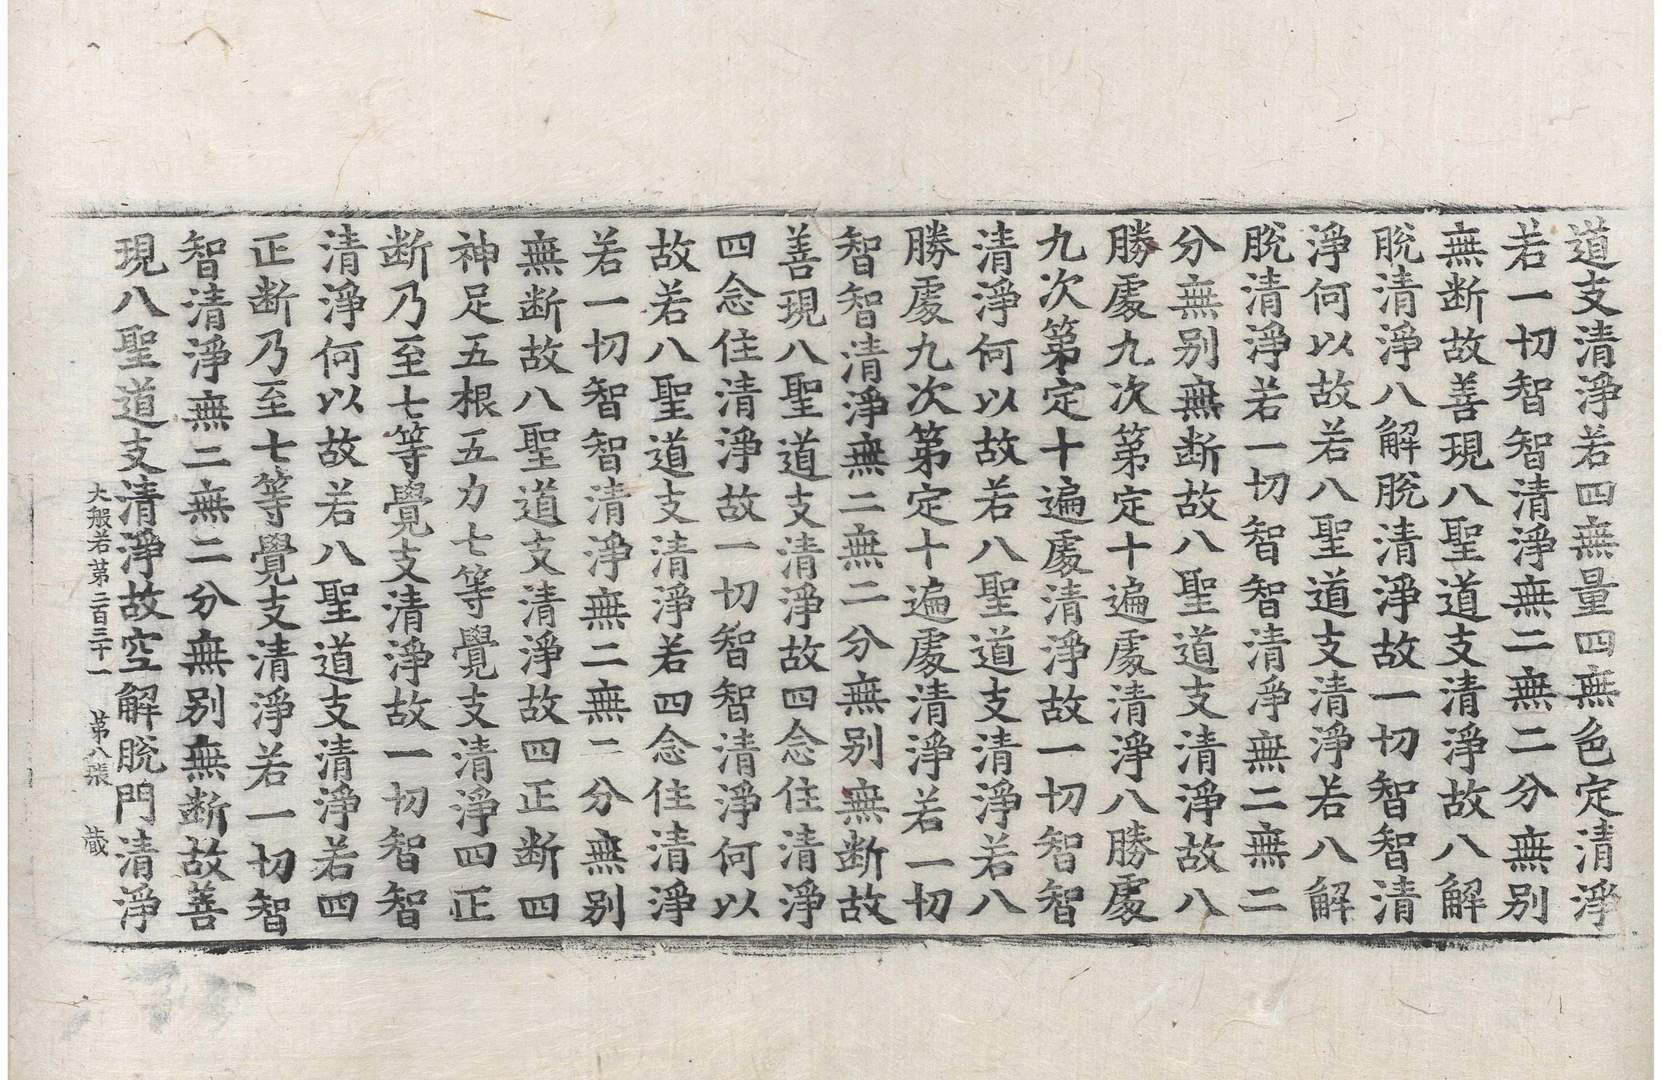 道支清淨若四無量四無色定清淨
若一切智智清淨無二無二分無别
無断故善現八聖道支清淨故八解
脫清淨八解脫清淨故一切智智清
淨何以故若八聖道支清淨若八解
脫清淨若一切智智清淨無二無二
分無别無断故八聖道支清淨故八
勝處九次第定十遍處清淨八勝處
九次第定十遍處清淨故一切智智
清淨何以故若八聖道支清淨若八
勝處九次第定十遍處清淨若一切
智智清淨無二無二分無别無断故
善現八聖道支清淨故四念住清淨
四念住清淨故一切智智清淨何以
故若八聖道支清淨若四念住清淨
若一切智智清淨無二無二分無别
無断故八聖道支清淨故四正断四
神足五根五力七等覺支清淨四正
断乃至七等覺支清淨故一切智智
清淨何以故若八聖道支清淨若四
正断乃至七等覺支清淨若一切智
智清淨無二無二分無别無断故善
現八聖道支清淨故空解脫門清淨
大般若第二百三十一 第八張 蔵